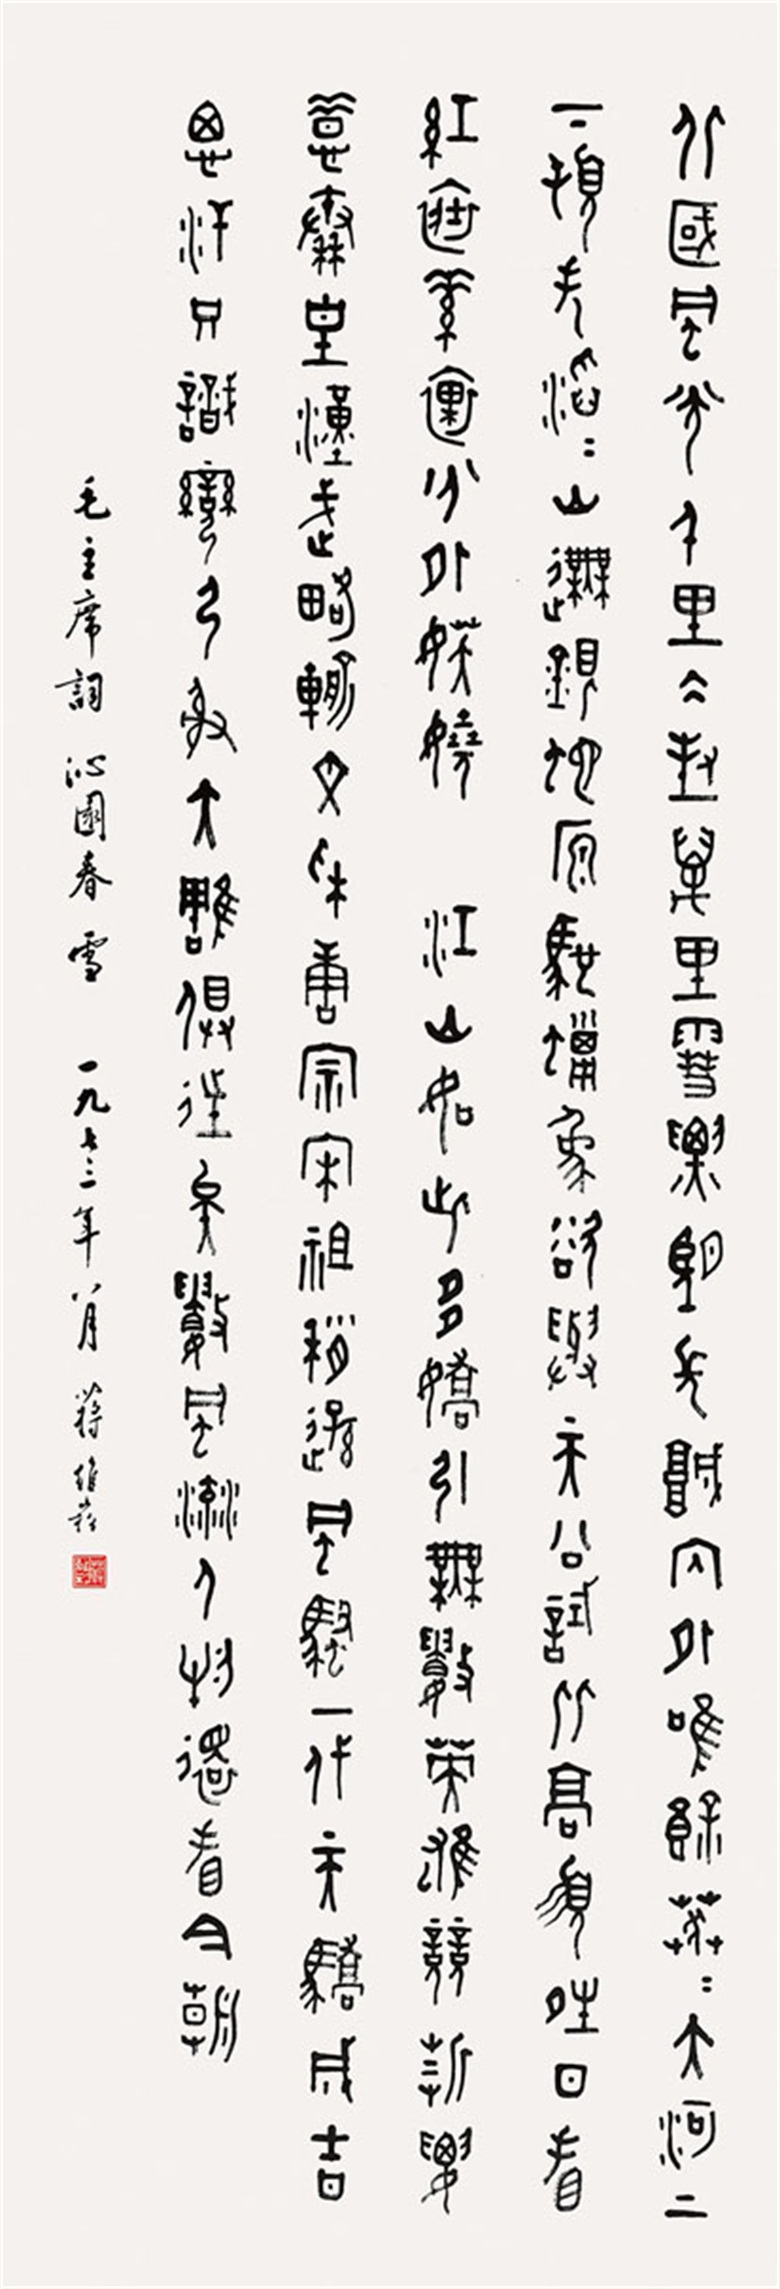 北國風光千里冰封萬里雪飄望長城內外唯餘莽〻大河上
下頓失滔〻山舞銀蛇原馳蠟象欲與天公試比高須晴日看
紅裝素裹分外妖嬈 江山如此多嬌引無數英雄競折腰
惜秦皇漢武略輸文采唐宗宋祖稍遜風騷一代天驕成吉
思汗只識彎弓射大雕俱往矣數風流人物還看今朝
毛主席詞 沁園春 雪 一九七三年八月 蔣維崧